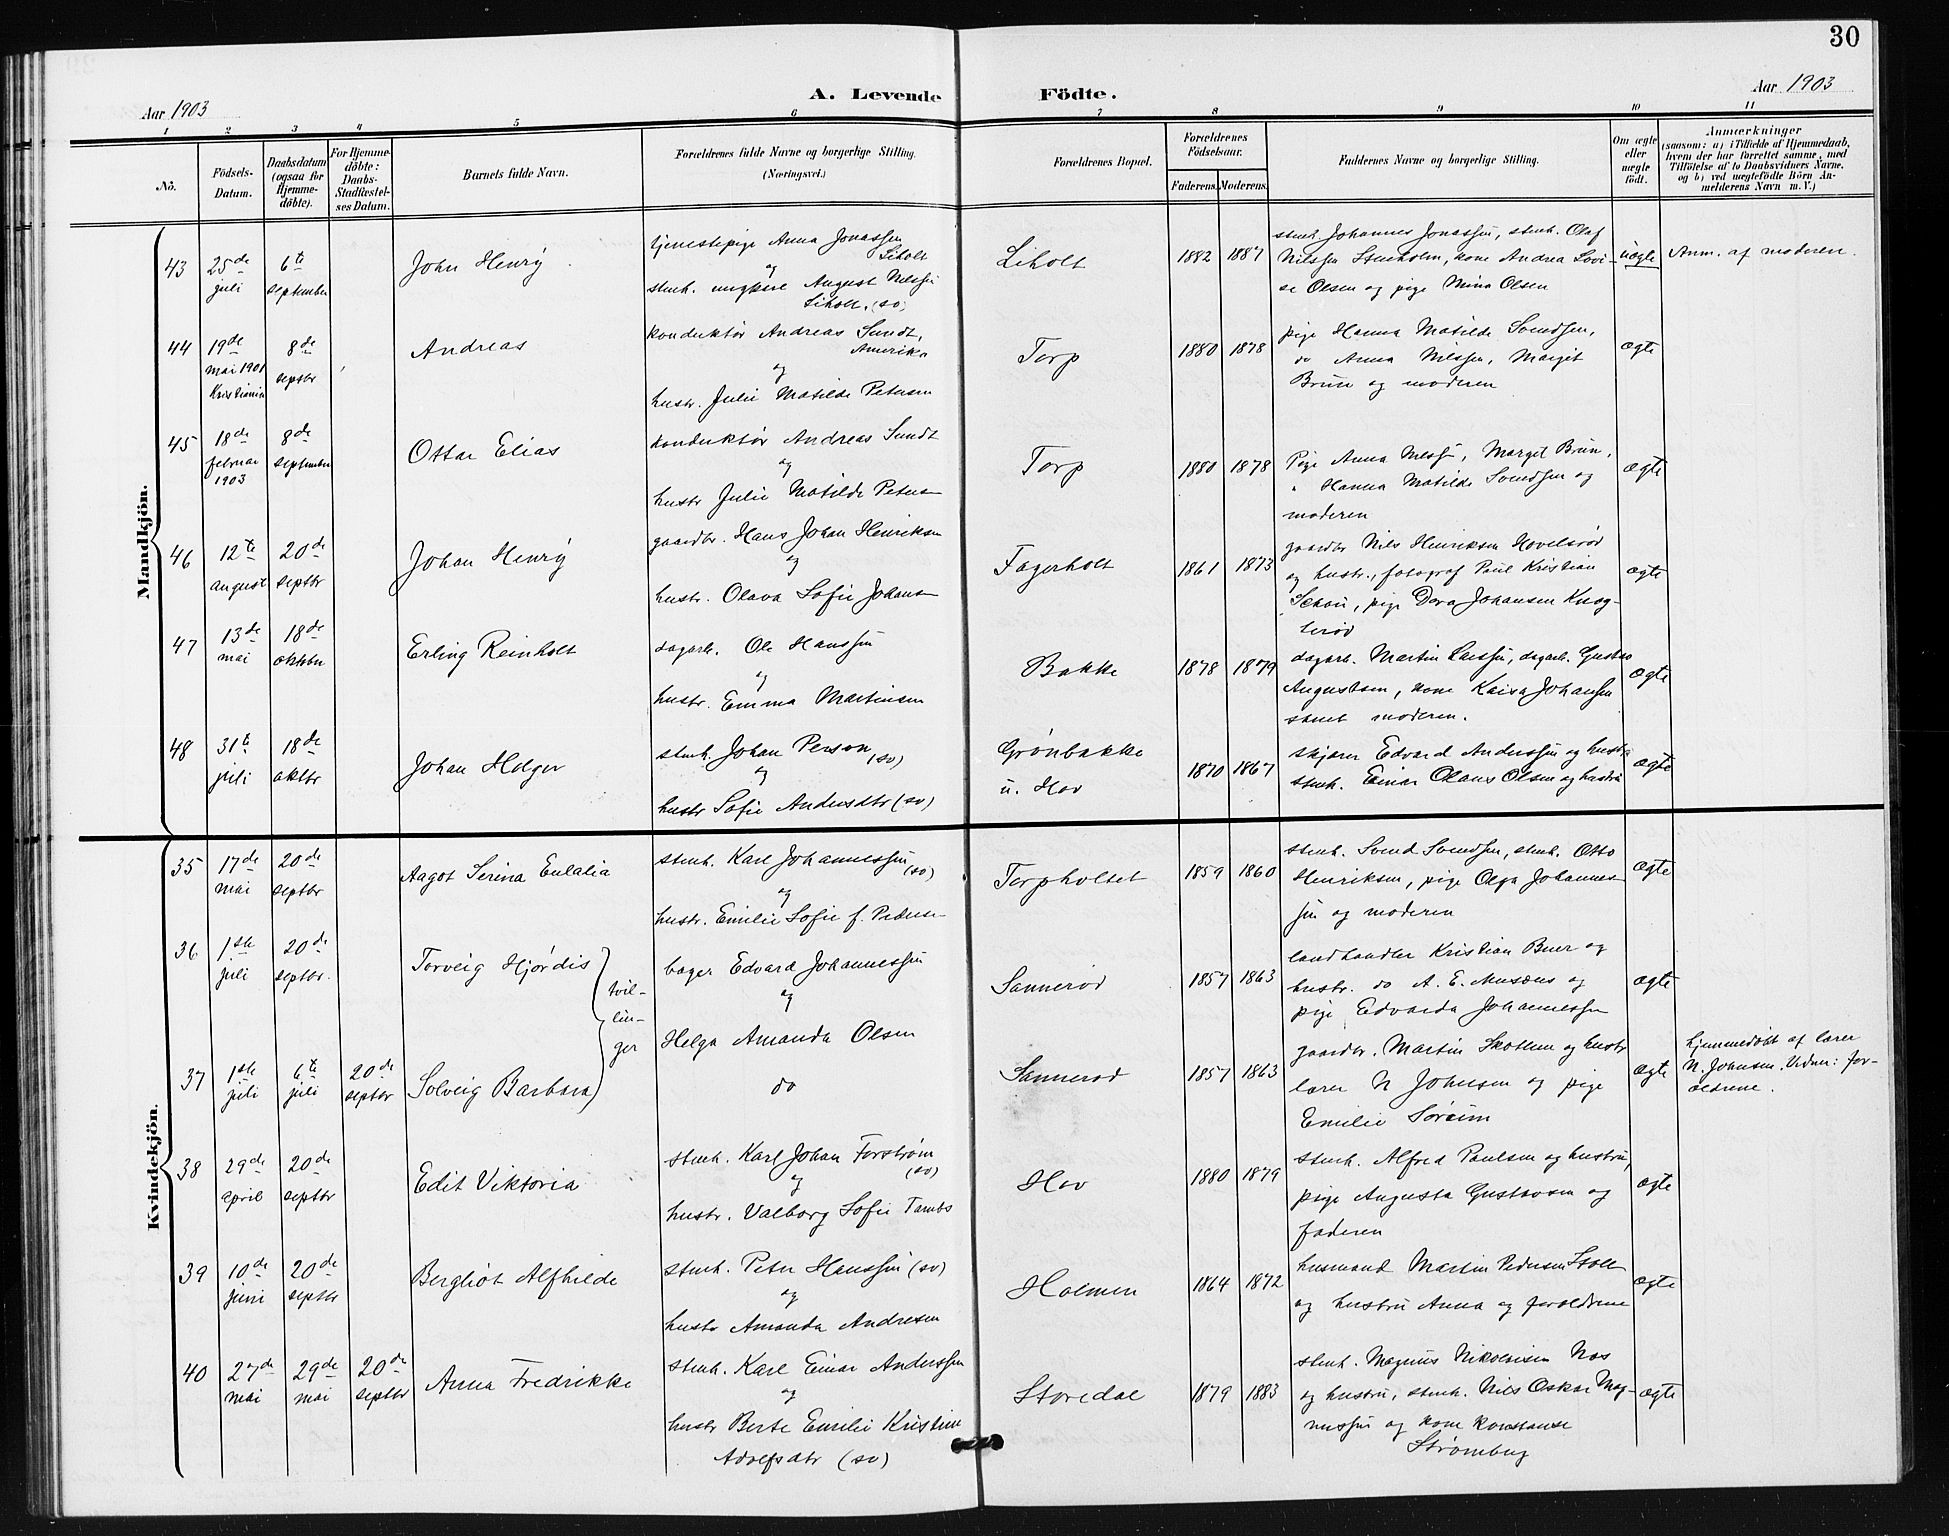 30
Aar 1903
A. Levende Födte.
Aar 1903
1 2 3 4 5 6 7 8 9 10 11
No.
Födsels-Datum.
Daabsdatum (ogsaa for Hjemme-döbte).
For Hjemme-döbte: Daabs-Stadfæstel-ses Datum.
Barnets fulde Navn.
Forældrenes fulde Navne og borgerlige Stilling. (Næringsvei.)
Forældrenes Bopæl.
Forældrenes Födselsaar.
Faderens. Moderens.
Faddernes Navne og borgerlige Stilling.
Om ægte eller uægte födt.
Anmærkninger
(saasom: a) i Tilfælde af Hjemmedaab,
hvem der har forrettet samme, med
Tilföielse af to Daabsvidners Navne,
og b) ved uægtefödte Börn An-
melderens Navn m. V.)
Mandkjön.
43 25de juli
6te september
John Henry
tjenestepige Anna Jonassen
Liholt
og
stenh. ungkarl August Nilssen
Liholt. (sv)
Liholt
1882 1887
stenh. Johannes Jonassen, stenh. Olaf
Nilssen Stenholm, kone Andrea Lovi-
se Olsen og pige Mina Olsen
uægte
Anm. af moderen.
44 19de mai 1901 Kristiania
8de septbr
Andreas
konduktør Andreas Sundt,
Amerika
og
hustr. Julie Matilde Petersen
Torp
1880 1878
pige Hanna Matilde Svendsen,
do Anna Nilssen, Margit
Brun og moderen
ægte
45 18de februar 1903
8de september
Ottar Elias
konduktør Andreas Sundt
og
hustr Julie Matilde Petersen
Torp
1880 1878
Pige Anna Nilssen, Margit Brun,
" Hanna Matilde Svendsen og
moderen
ægte
46 12te august
20de septbr
Johan Henry
gaardbr. Hans Johan Henriksen
og
hustr. Olava Sofie Johansen
Fagerholt
1861 1873
gaardbr Nils Henriksen Hovelsrød
og hustr., fotograf Paul Kristian
Schou, pige Dora Johansen Knog-
lerød
ægte
47 13de mai
18de oktober
Erling Reinholt
dagarb. Ole Hanssen
og
hustr. Emma Martinsen
Bakke
1878 1879
dagarb. Martin Larssen, dagarb. Gustav
Augustsen, kone Kaisa Johansen
samt moderen.
ægte
48 31te juli
18de oktbr
Johan Holger
stenh. Johan Person (sv)
og
hustr Sofie Andersdtr (sv)
Grønbakke
u. Hov
1870 1867
skjærer Edvard Anderssen og hustru
stenh. Einar Olaus Olsen og hustru
ægte
Kvindekjön.
35 17de mai
20de septbr
Aagot Serina Eulalia
stenh. Karl Johannessen (sv)
og
hustr. Emilie Sofie f. Pedersen
Torpholtet
1859 1860
stenh. Svend Svendsen, stenh. Otto
Henriksen, pige Olga Johannes-
sen og moderen
ægte
36 1ste juli
20de septbr.
Torveig Hjørdis
tvil-
lin-
ger
bager Edvard Johannessen
og
Helga Amanda Olsen
Sannerød
1857 1863
landhandler Kristian Buer og
hustr. do A. E. Musæus og
pige Edvarda Johannessen
ægte
37 1ste juli
6te juli
20de septbr
Solveig Barbara
do
Sannerød
1857 1863
gaardbr. Martin Skotten og hustr
lærer N Johnsen og pige
Emilie Sørum
ægte
hjemmedøbt af lærer
N. Johnsen. Vidner: for-
ældrene.
38 29de april
20de septbr
Edit Viktoria
stenh. Karl Johan Forstrøm
(sv)
og
hustr. Valborg Sofie Tambs
Hov
1880 1879
stenh. Alfred Paulsen og hustru,
pige Augusta Gustavsen og
faderen
ægte
39 10de juni
20de septbr
Bergliot Alfhilde
stenh. Peter Hanssen (sv)
og
hustr Amanda Andresen
Holmen
1864 1872
husmand Martin Pedersen
og hustru Anna og forældrene
ægte
40 27de mai
29de mai
20de septbr
Anna Fredrikke
stenh. Karl Einar Anderssen
og
hustr Berte Emilie Kristine
Adolfsdtr (sv)
Storedal
1879 1883
stenh. Magnus Nikolaisen Nos
og hustru, stenh. Nils Oskar Mag-
nussen og kone Konstanse
Strømberg
ægte